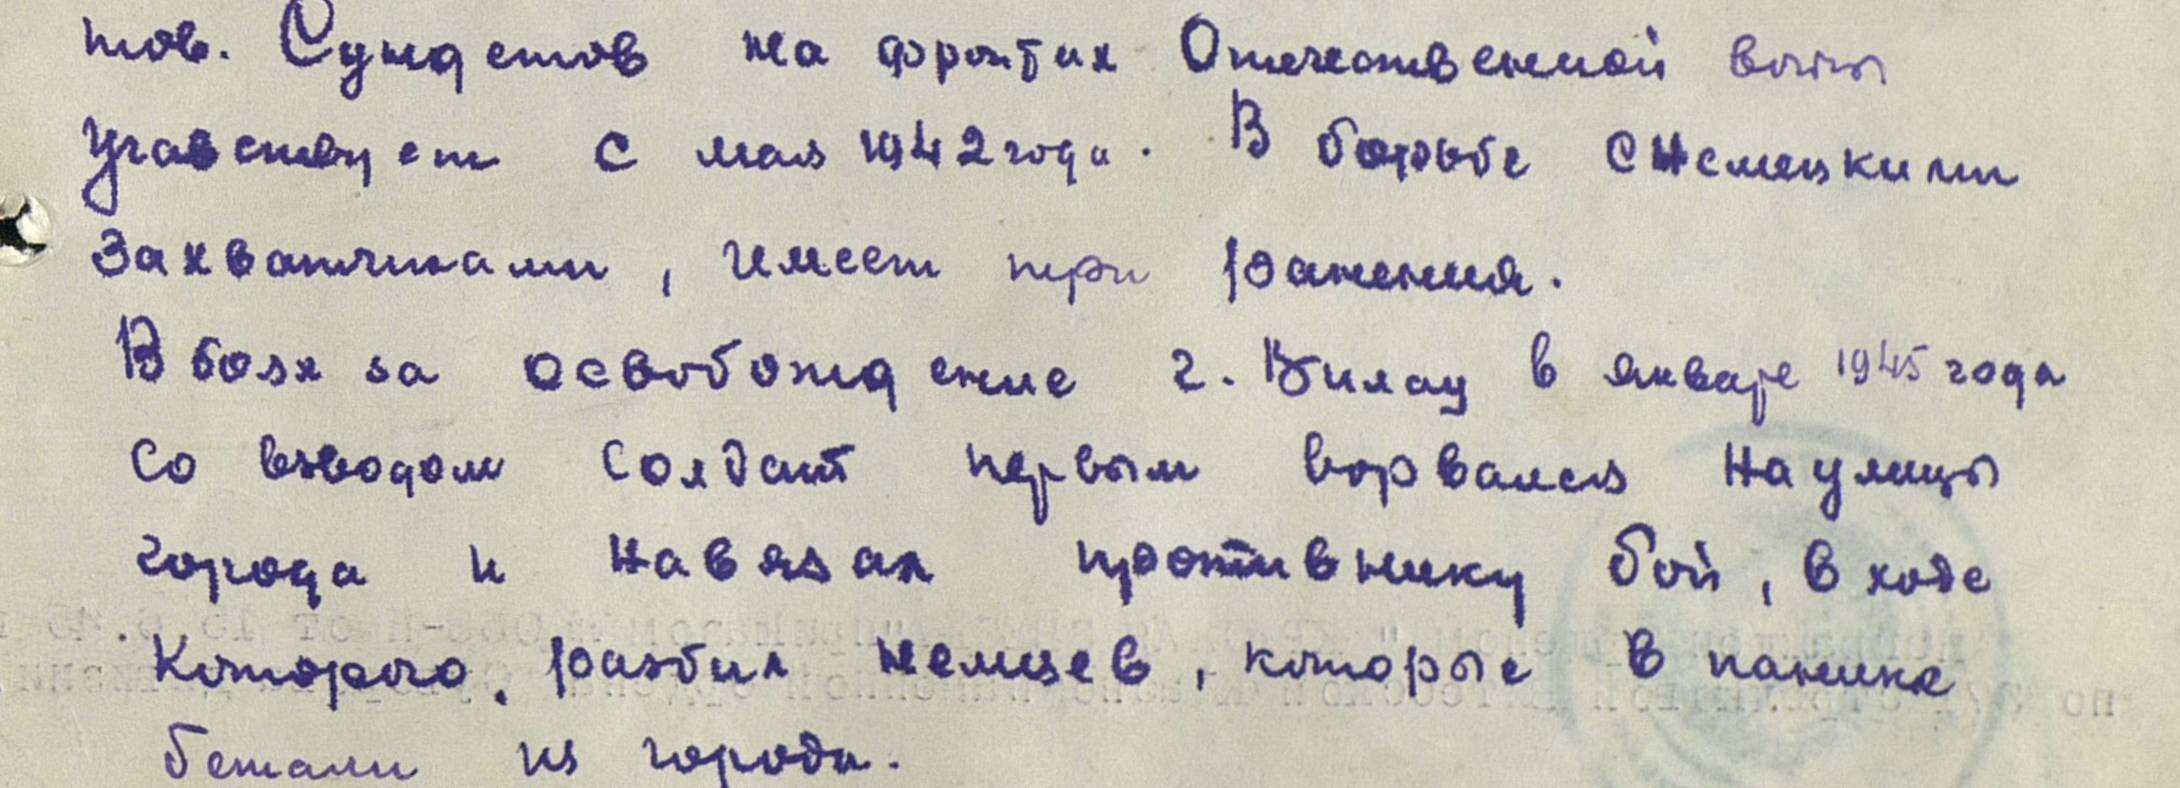 тов. Сундетов на фронтах Отечественной войны
участвует с мая 1942 года. В борьбе с немецкими
захватчиками, имеет три ранения.
В боях за освобождение г. Вилау в январе 1945 года
со взводом солдат первым ворвался на улицы
города и навязал противнику бой, в ходе
которого, разбил немцев, которые в панике
бежали из города.